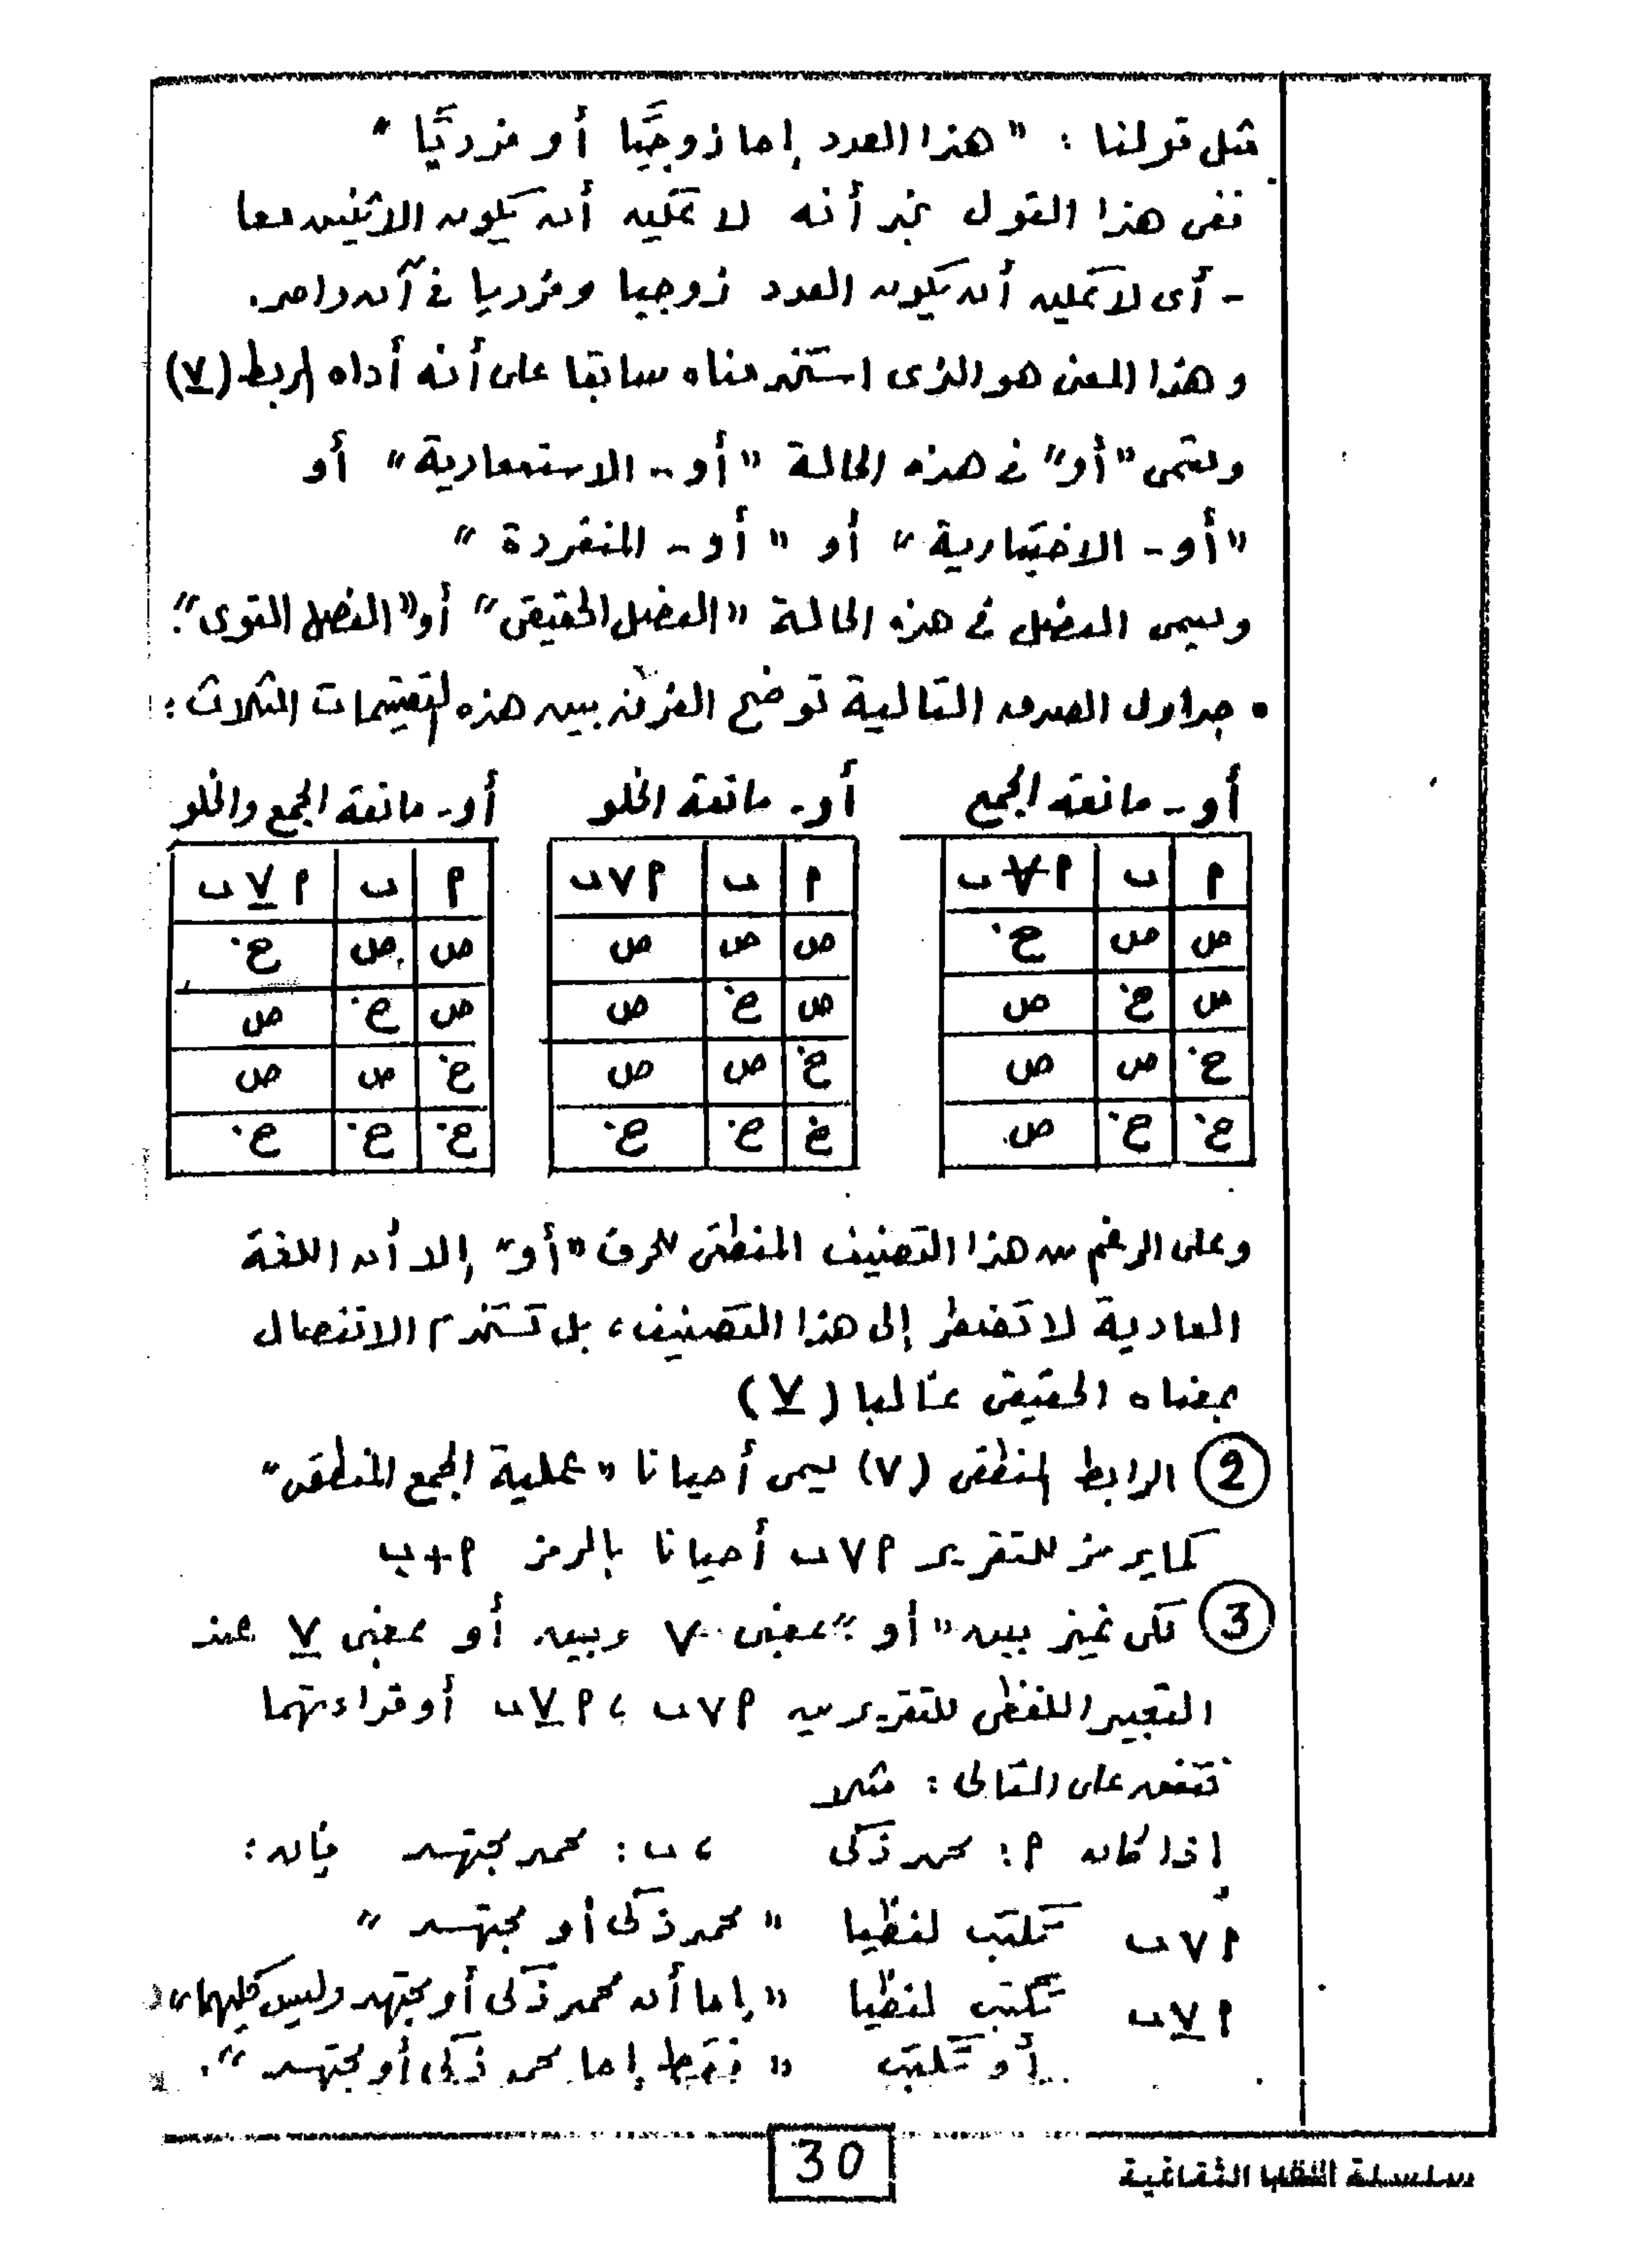 مثل قولنا : " هذا العدد إما زوجيًا أو فرديًا "
ففى هذا القول نجد أنه لا يمكن أن يكون الاثنين معا
- أى لا يمكن أن يكون العدد زوجيا وفرديا فى آن واحد.
وهذا المعنى هو الذى استخدمناه سابقا على أنه أداه الربط (⊻)
وتسمى "أو" فى هذه الحالة "أو - الاستبعادية" أو
"أو - الاختيارية" أو "أو - المنفردة"
ويسمى الفصل فى هذه الحالة "الفصل الحقيقى" أو "الفصل القوى".
• جداول الصدق التالية توضح الفرق بين هذه التقسيمات الثلاث :
أو - مانعة الجمع
م ب م ⩝ ب
ص ص خ
ص خ ص
خ ص ص
خ خ ص
أو - مانعة الخلو
م ب م ∨ ب
ص ص ص
ص خ ص
خ ص ص
خ خ خ
أو - مانعة الجمع والخلو
م ب م ⊻ ب
ص ص خ
ص خ ص
خ ص ص
خ خ خ
وعلى الرغم من هذا التصنيف المنطقى لحرف "أو" إلا أن اللغة
العادية لا تضطر إلى هذا التصنيف، بل تستخدم الانفصال
بمعناه الحقيقى غالبا (⊻)
(2) الرابط المنطقى (∨) يسمى أحيانا "عملية الجمع المنطقى"
كما يرمز للتقرير م ∨ ب أحيانا بالرمز م + ب
(3) لكى نميز بين "أو" بمعنى ∨ وبين أو بمعنى ⊻ عند
التعبير اللفظى للتقريرين م ∨ ب ، م ⊻ ب أو قراءتهما
نتفق على التالى : مثلا
إذا كان م : محمد ذكى ، ب : محمد مجتهد فإن :
م ∨ ب تكتب لفظيا " محمد ذكى أو مجتهد "
م ⊻ ب تكتب لفظيا " إما أن محمد ذكى أو مجتهد وليس كليهما "
أو تكتب " فقط إما محمد ذكى أو مجتهد ".
30
سلسلة الثقافية